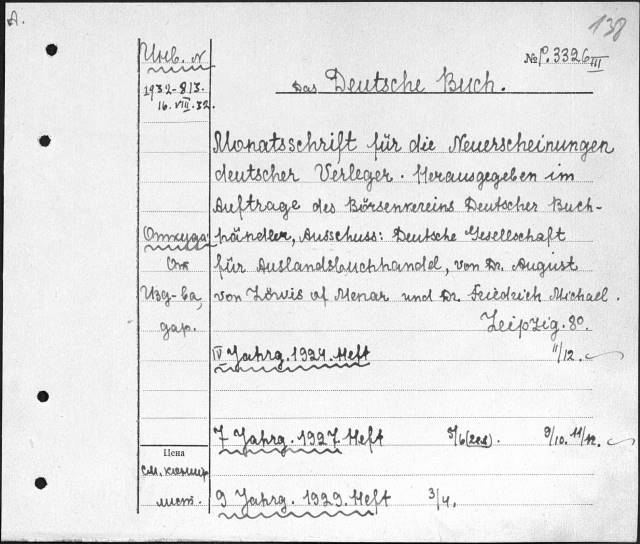 A.
138
Инв. №
№ P.3326 III
1932-813.
16.VIII.32.
Das Deutsche Buch.
Monatsschrift für die Neuerscheinungen
deutscher Verleger. Herausgegeben im
Auftrage des Börsenvereins Deutscher Buch-
Откуда
händler, Ausschuss: Deutsche Gesellschaft
От
für Auslandsbuchhandel, von Dr. August
Изд-ва,
von Löwis of Menar und Dr. Friedrich Michael.
дар.
Leipzig. 8º.
IV Jahrg. 1924. Heft 11/12.
7 Jahrg. 1927. Heft 5/6 9/10. 11/12.
Цена
см. канцир
лист.
9 Jahrg. 1929. Heft 3/4.